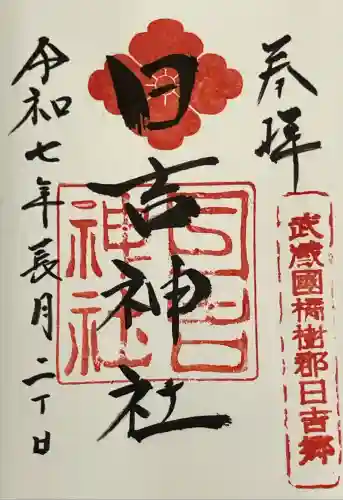 奉拝
武蔵國橘樹郡日吉郷
日吉神社
日吉
神社
令和七年長月二丁日